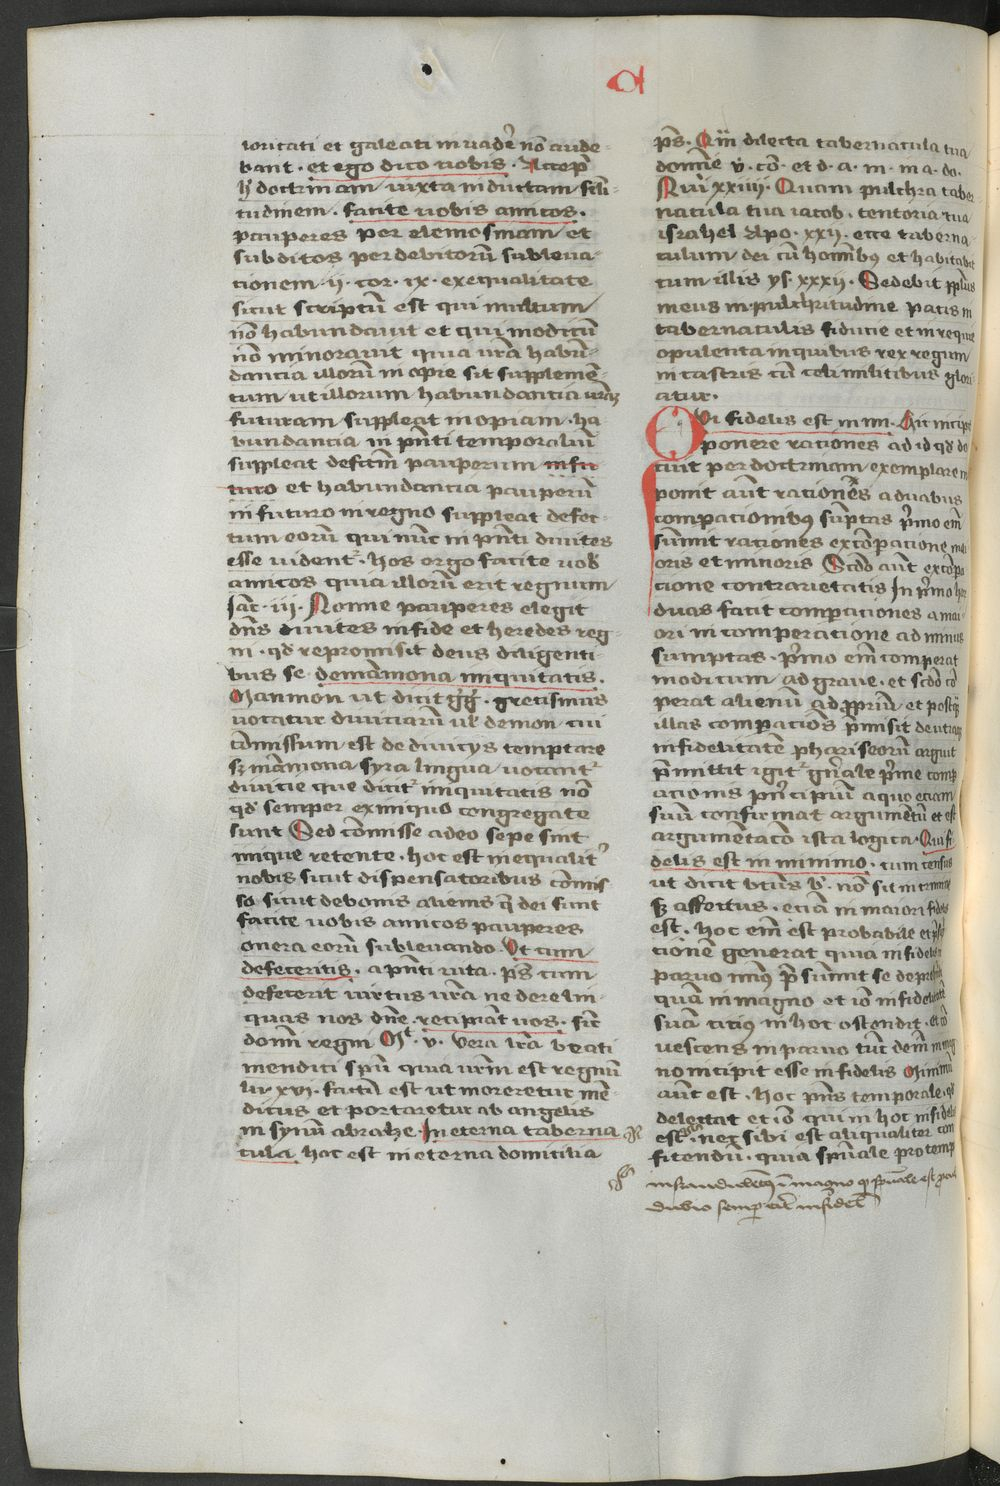 a
loricati et galeati inuadeͬ nō aude-
bant. et ego dico uobis. Accepͣ
hͨ doctrinam iuxta inductam sili-
tudinem. facite uobis amicos.
pauperes per elemosinam et
subditos per debitorū subleua-
cionem. ij. cor. ix. ex equalitate
sicut scriptū est qui multum
nō habundauit et qui modicū
nō minorauit quia ur̄a habū-
dancia illorū inopie sit supplemē-
tum ut illorum habundancia urāȝ
futuram suppleat inopiam. ha
bundancia in pn̄ti temporaliū
suppleat defectū pauperum in fu
turo et habundancia pauperū
in futuro in regno suppleat defec-
tum eorū qui nūc in pn̄ti diuites
esse uident᷑. hos ergo facite uob̄
amicos quia illorū erit regnum
Iac̄. iij. Nonne pauperes elegit
dn̄s diuites in fide et heredes reg-
ni. qd̄ repromisit deus diligenti-
bus se. de mamona iniquitatis.
Manmon ut dicit gͥgͥ. grecismus
uocatur diuiciarū ul̄ demon cui
cōmissum est de diuicijs temptare
sȝ māmona syra lingua uocant᷑
diuicie que dicit᷑ iniquitatis nō
qd̄ semper ex iniquo congregate
sunt Sed cōmisse a deo sepe sint
inique retente. hoc est inequalit᷑
nobis sicut dispensatoribus cōmis
so sicut de bonis alienis q̄ dei sunt
facite uobis amicos pauperes
onera eorū subleuando. Ut cum
defeceritis. a pn̄ti uita. ps̄ cum
defecerit uirtus ur̄a ne derelin-
quas nos dn̄e. recipiāt uos. sic̄
domī regni Mͭ. v. vera lr̄a beati
mendici spū quia urm̄ est regnū
lu xvi. factū est ut moreretur mē-
dicus et portaretur ab angelis
in synū abrahe. In eterna taberna
cula. hoc est in eterna domicilia
ps̄. Qm̄ dilecta tabernacula tua
domīe v̄. cō. et d. a. m. in a. do.
Nūi xxiiij. Quam pulchra taber-
nacula tua iacob. tentoria tua
israhel Apo. xxij. ecce taberna-
culum dei cū hominibꝰ et habitabit
cum illis ys. xxxij. Sedebit pp̄lus
meus in pulchritudine pacis in
tabernaculis fiducie et in requie
opulenta in quibus rex regum
in castris cū celi militibus glori
atur.
QUi fidelis est in mi. Hic incipit
ponere rationes ad id qd̄ do
cuit per doctrinam exemplarem
ponit aūt rationes a duabus
comparacionibus sūptas pͥmo em̄
sūmit rationes ex cōpacione mai
oris et minoris Scd̄o aūt ex cōpa
cione contrarietatis In pͥmo
duas facit compaciones a mai-
ori in comperacione ad minus
sumptas. pͥmo em̄ comperat
modicum ad graue. et scd̄o cō
perat alienū ad propriū et postqȝ
illas compaciōs p̄misit de utraqȝ
infidelitatē phariseorū arguit
p̄mittit igit᷑ gn̄ale pͥme comp
acionis pͥncipiū a quo eciam
suū confirmat argumētū et est
argumētacō ista logica. Qui fi
delis est in minimo. cum census
ut dicit bt̄us b᷑. nō sit in crimine
sȝ affectus. eciā in maiori fidelis
est. hoc em̄ est probabile et
cionē generat quia infidelis in
paruo
quā in magno et iō infidelitatē
suā cicius in hoc ostendit.
uescens in paruo tūc demū in mag
no incipit esse infidelis Minimū
aūt est. hoc pn̄s temporale. qd̄
delectat et iō qui in hoc infidelis
est. nex sibi est aliqualiter con
fitendū. quia spūale pro temp
in magno qd̄ spūale est
dubio semp